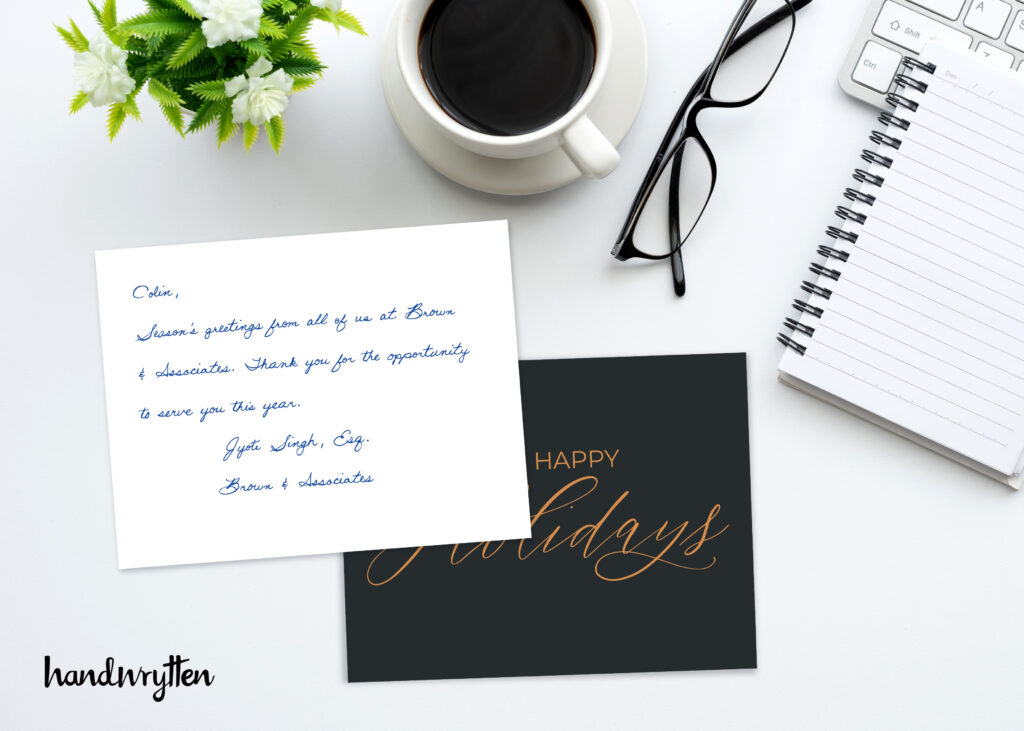 Shift
A
Ctrl
Z
Date :
Colin,
Season's greetings from all of us at Brown
& Associates. Thank you for the opportunity
to serve you this year.
Jyoti Singh, Esq.
Brown & Associates
HAPPY
Holidays
handwrytten